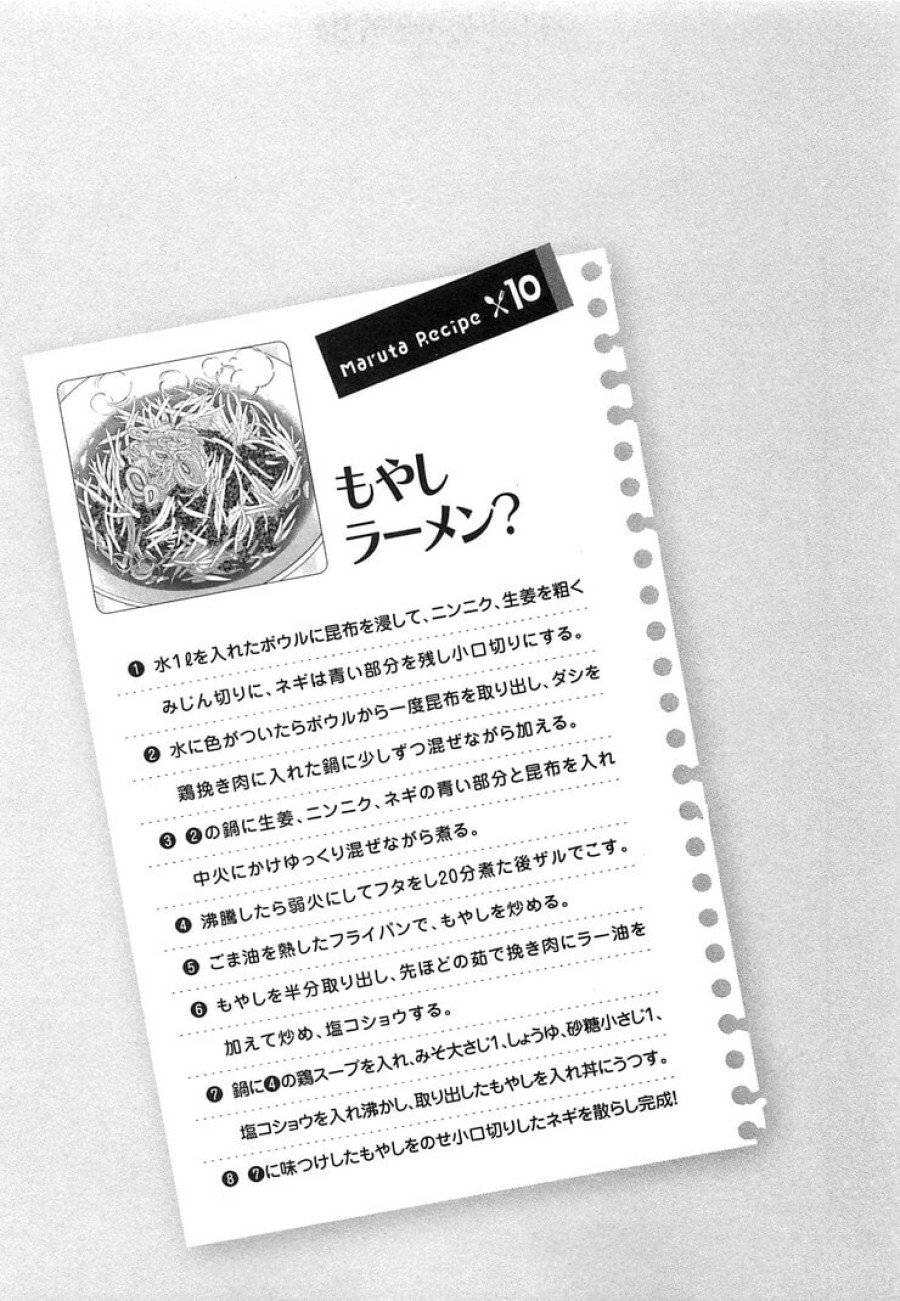 Maruta Recipe 10
もやし
ラーメン?
❶ 水1ℓを入れたボウルに昆布を浸して、ニンニク、生姜を粗く
みじん切りに、ネギは青い部分を残し小口切りにする。
❷ 水に色がついたらボウルから一度昆布を取り出し、ダシを
鶏挽き肉に入れた鍋に少しずつ混ぜながら加える。
❸ ❷の鍋に生姜、ニンニク、ネギの青い部分と昆布を入れ
中火にかけゆっくり混ぜながら煮る。
❹ 沸騰したら弱火にしてフタをし20分煮た後ザルでこす。
❺ ごま油を熱したフライパンで、もやしを炒める。
❻ もやしを半分取り出し、先ほどの茹で挽き肉にラー油を
加えて炒め、塩コショウする。
❼ 鍋に❹の鶏スープを入れ、みそ大さじ1、しょうゆ、砂糖小さじ1、
塩コショウを入れ沸かし、取り出したもやしを入れ丼にうつす。
❽ ❼に味つけしたもやしをのせ小口切りしたネギを散らし完成!